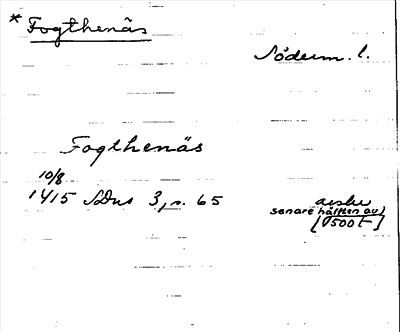 * Fogthenäs
Söderm. l.
Fogthenäs
10/8
1415 SDns 3, s. 65
avskr
senare hälften av
[1500 t]